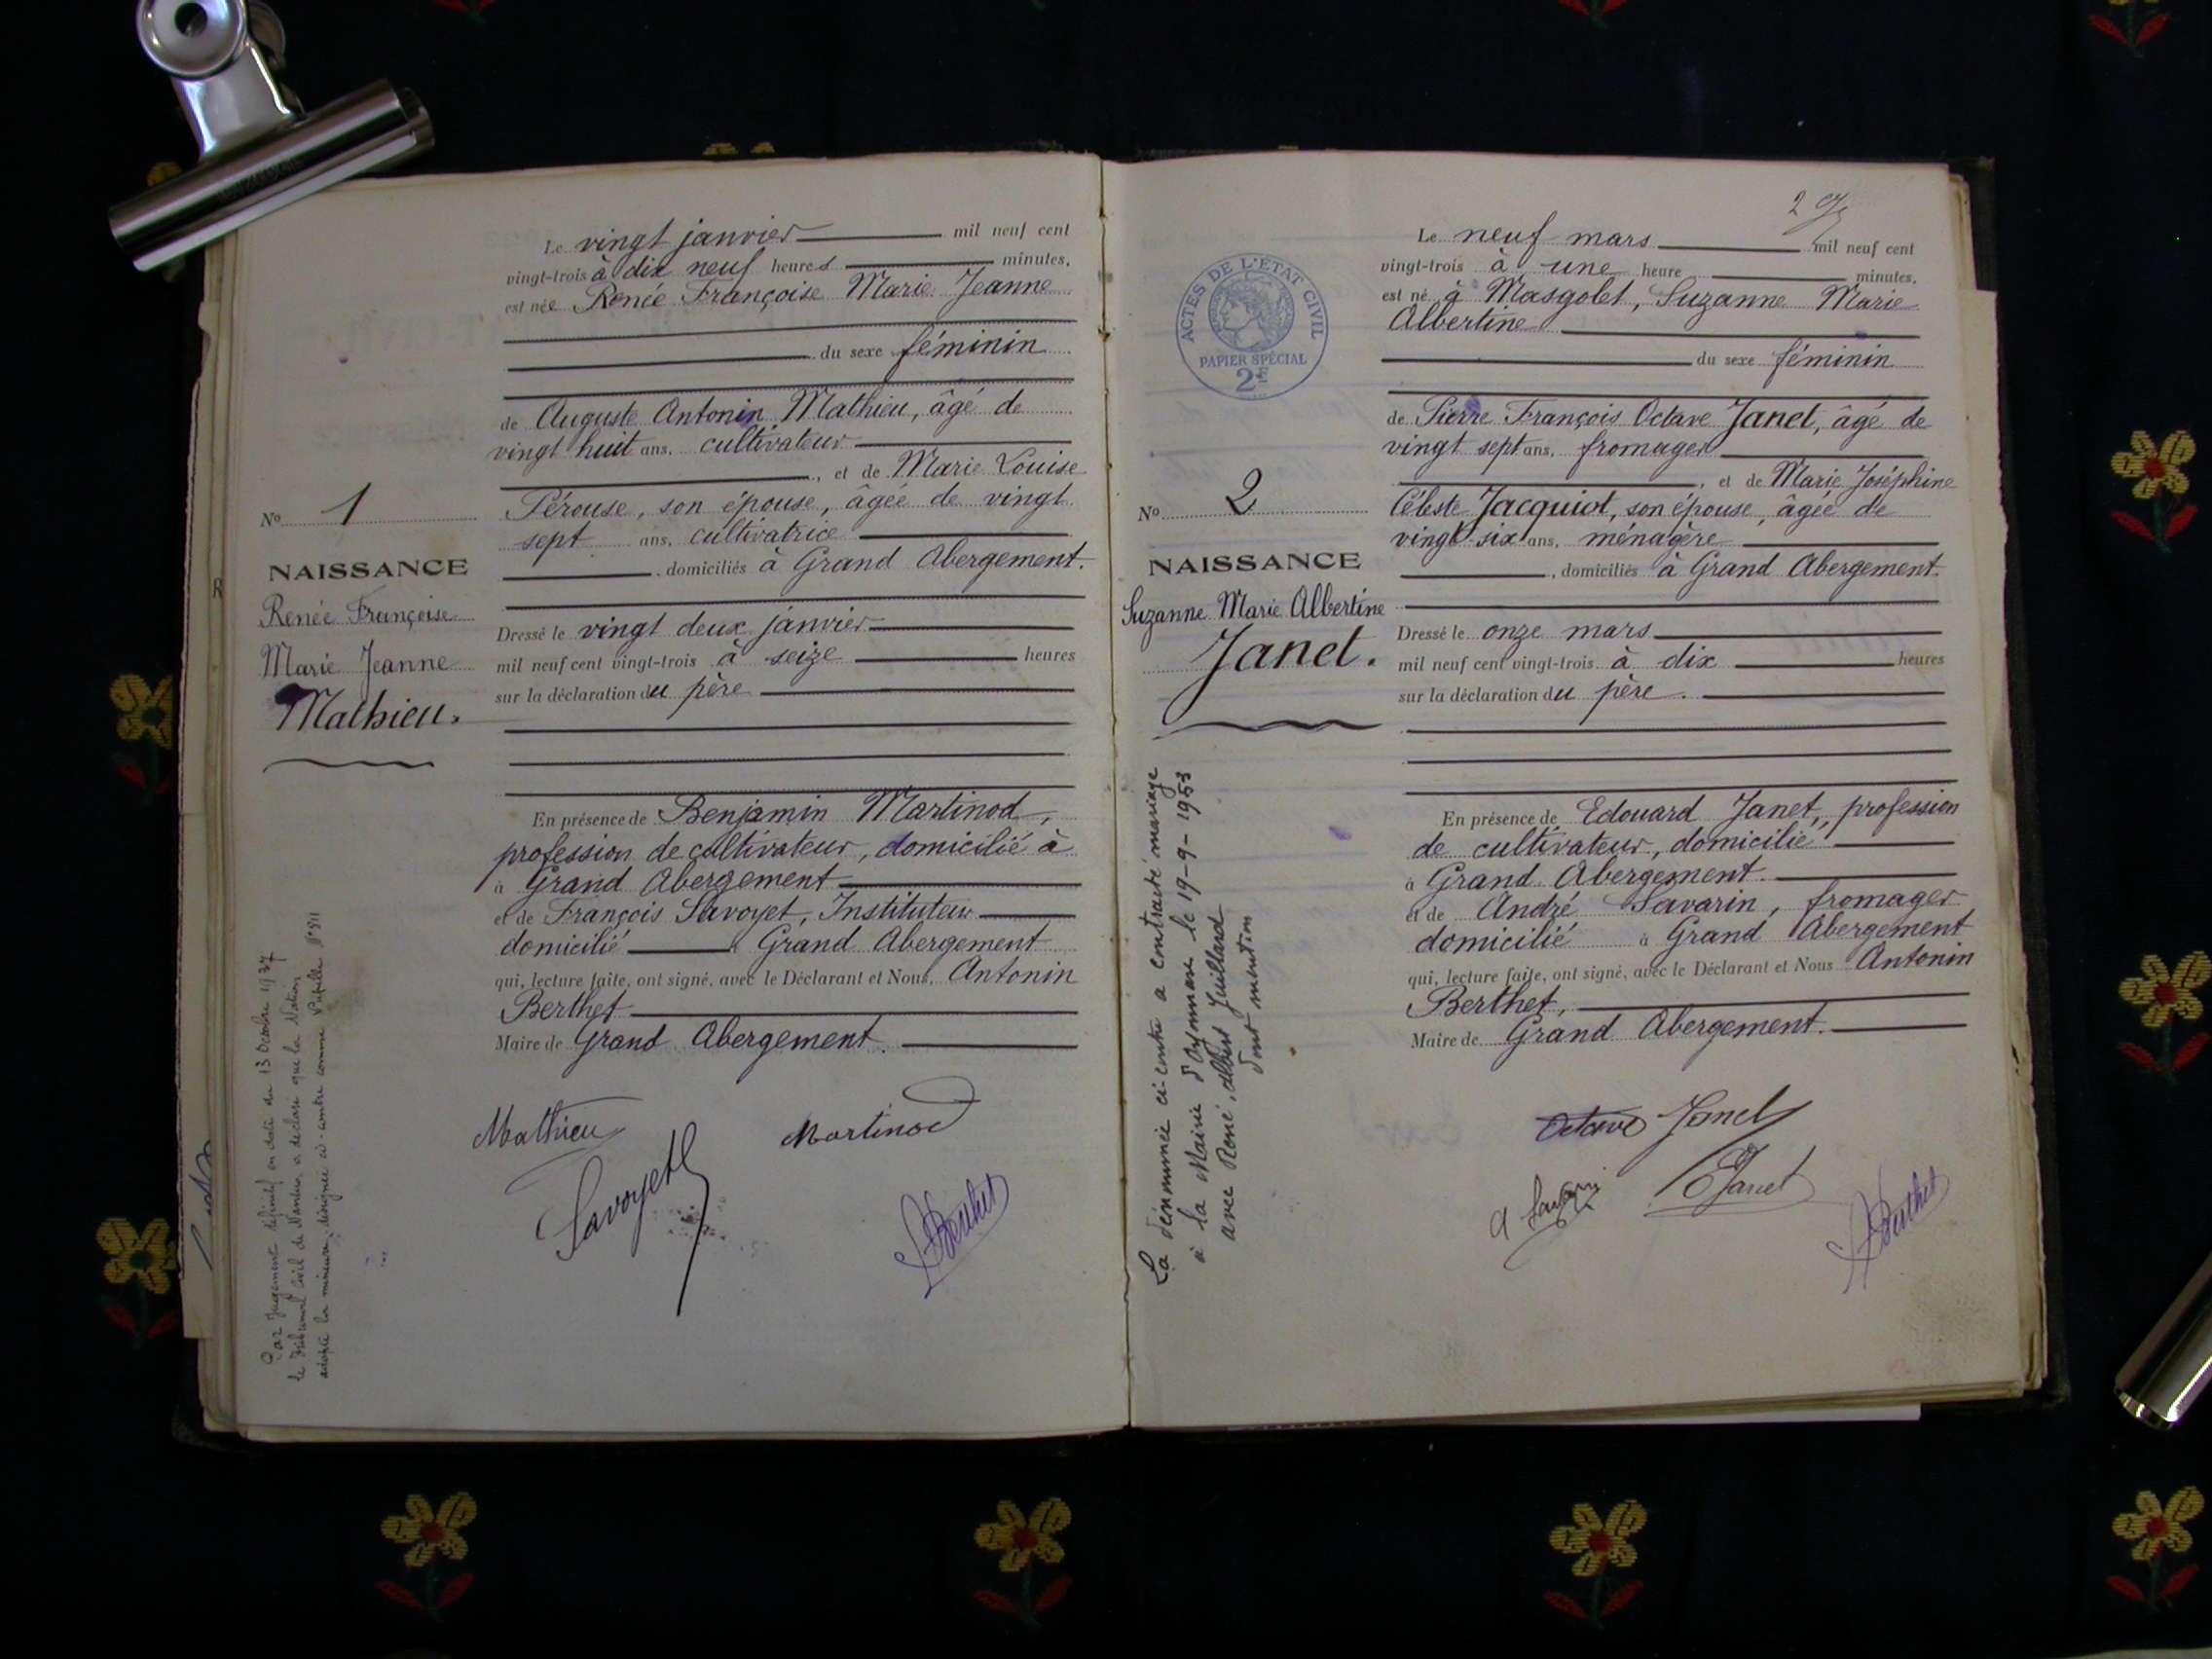 Le vingt janvier mil neuf cent
vingt-trois à dix neuf heures minutes,
est née Renée Françoise Marie Jeanne
du sexe féminin
de Auguste Antonin Mathieu, âgé de
vingt huit ans, cultivateur
, et de Marie Louise
Pérouse, son épouse, âgée de vingt
sept ans, cultivatrice
, domiciliés à Grand Abergement.
Dressé le vingt deux janvier
mil neuf cent vingt-trois à seize heures
sur la déclaration du père
En présence de Benjamin Martinod,
profession de cultivateur, domicilié à
à Grand Abergement
et de François Savoyet, Instituteur
domicilié à Grand Abergement
qui, lecture faite, ont signé, avec le Déclarant et Nous, Antonin
Berthet
Maire de Grand Abergement.
Mathieu
Martinod
Savoyet
Berthet
No 1
NAISSANCE
Renée Françoise
Marie Jeanne
Mathieu.
Par Jugement définitif en date du 13 Octobre 1937
le Tribunal Civil de Nantua a déclaré que la Nation
adopté la mineure désignée ci-contre comme Pupille
2
ACTES DE L'ÉTAT CIVIL
PAPIER SPÉCIAL
2F
Le neuf mars mil neuf cent
vingt-trois à une heure minutes,
est né à Masgolet, Suzanne Marie
Albertine
du sexe féminin
de Pierre François Octave Janet, âgé de
vingt sept ans, fromager
, et de Marie Joséphine
Céleste Jacquiot, son épouse, âgée de
vingt six ans, ménagère
, domiciliés à Grand Abergement.
Dressé le onze mars
mil neuf cent vingt-trois à dix heures
sur la déclaration du père.
En présence de Edouard Janet, profession
de cultivateur, domicilié
à Grand Abergement.
et de André Savarin, fromager
domicilié à Grand Abergement
qui, lecture faite, ont signé, avec le Déclarant et Nous Antonin
Berthet,
Maire de Grand Abergement.
Octave Janet
A Savarin
E Janet
Berthet
No 2
NAISSANCE
Suzanne Marie Albertine
Janet.
La dénommée ci-contre a contracté mariage
à la Mairie d'Oyonnax le 19-9-1953
avec René, Albert Juilland
dont mention